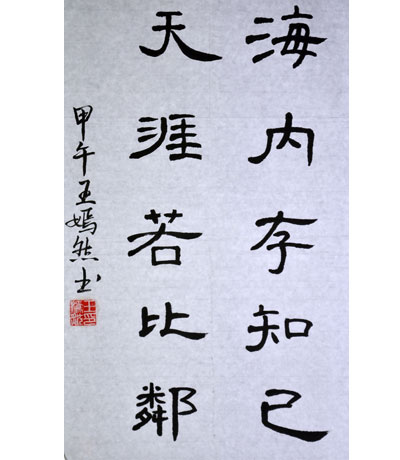 海内存知己
天涯若比鄰
甲午王嫣然书